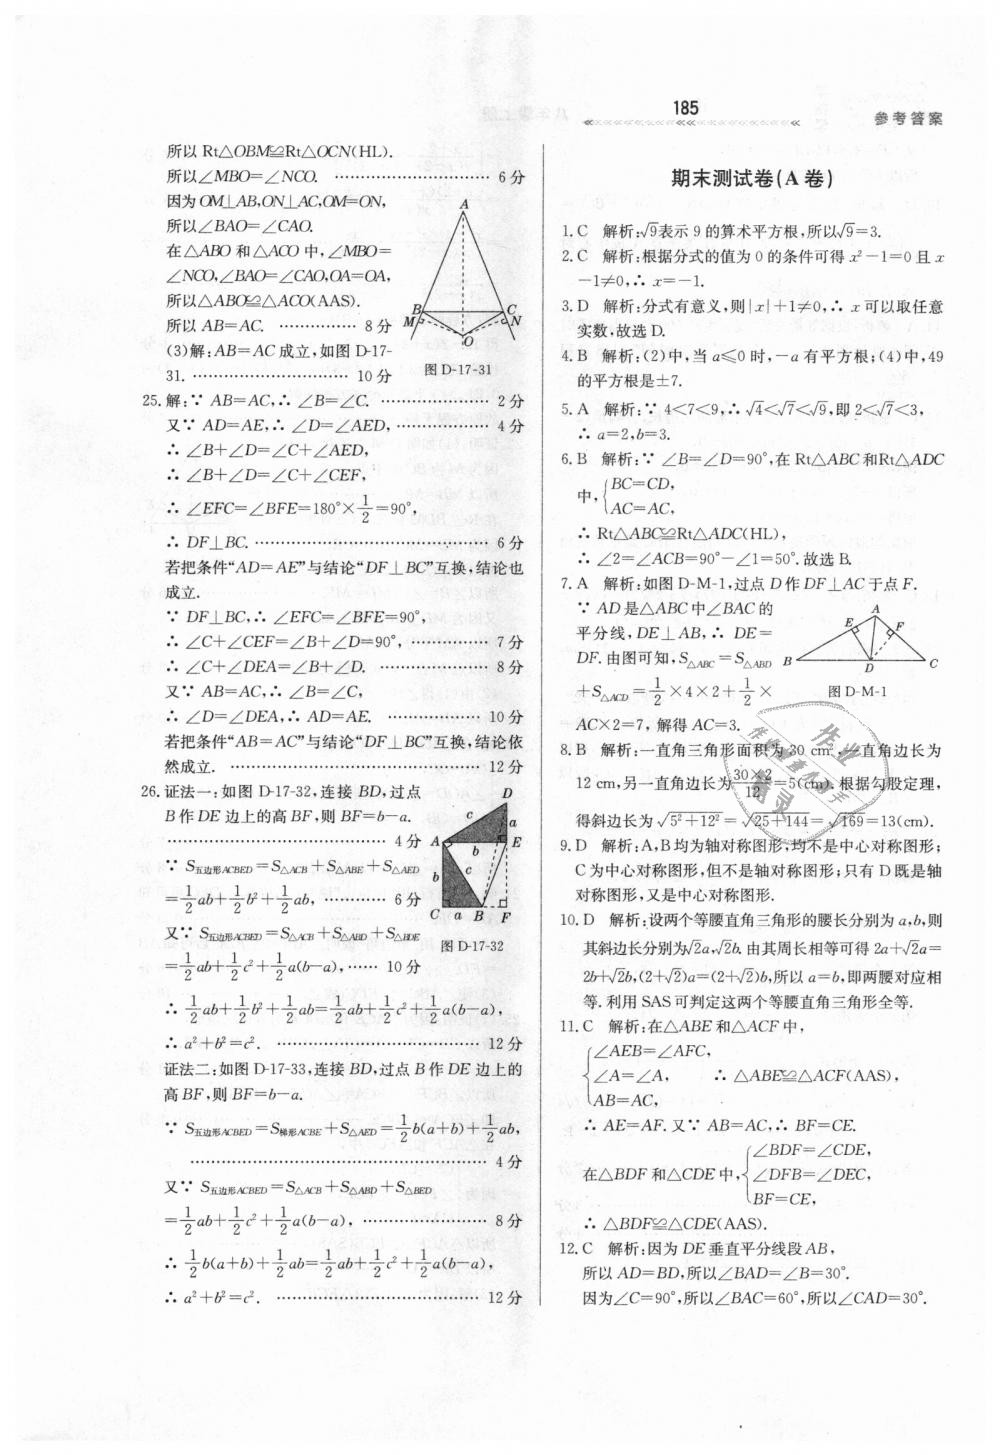 185
参考答案
所以 Rt△OBM≌Rt△OCN(HL).
所以∠MBO=∠NCO. …………………………… 6 分
因为 OM⊥AB,ON⊥AC,OM=ON,
所以∠BAO=∠CAO.
在△ABO 和△ACO 中,∠MBO=
∠NCO,∠BAO=∠CAO,OA=OA,
所以△ABO≌△ACO(AAS).
所以 AB=AC. …………… 8 分
(3)解:AB=AC 成立,如图 D-17-
31. ………………………… 10 分
A
B
C
M
N
O
图 D-17-31
25. 解:∵ AB=AC,∴ ∠B=∠C. ………………… 2 分
又∵ AD=AE,∴ ∠D=∠AED, ……………… 4 分
∴ ∠B+∠D=∠C+∠AED,
∴ ∠B+∠D=∠C+∠CEF,
∴ ∠EFC=∠BFE=180°×1/2=90°,
∴ DF⊥BC. ………………………………………… 6 分
若把条件“AD=AE”与结论“DF⊥BC”互换,结论也
成立.
∵ DF⊥BC,∴ ∠EFC=∠BFE=90°,
∴ ∠C+∠CEF=∠B+∠D=90°, ……………… 7 分
∴ ∠C+∠DEA=∠B+∠D. …………………… 8 分
又∵ AB=AC,∴ ∠B=∠C,
∴ ∠D=∠DEA,∴ AD=AE. ……………… 10 分
若把条件“AB=AC”与结论“DF⊥BC”互换,结论依
然成立. …………………………………………… 12 分
26. 证法一:如图 D-17-32,连接 BD,过点
B 作 DE 边上的高 BF,则 BF=b-a.
…………………………………… 4 分
∵ S五边形ACBED=S△ACB+S△ABE+S△AED
=1/2ab+1/2b²+1/2ab, ………… 6 分
又∵ S五边形ACBED=S△ACB+S△ABD+S△BDE
=1/2ab+1/2c²+1/2a(b-a), …… 10 分
D
c
a
A
b
E
b
c
C a B F
图 D-17-32
∴ 1/2ab+1/2b²+1/2ab=1/2ab+1/2c²+1/2a(b-a),
∴ a²+b²=c². ………………………………… 12 分
证法二:如图 D-17-33,连接 BD,过点 B 作 DE 边上的
高 BF,则 BF=b-a.
∵ S五边形ACBED=S梯形ACBE+S△AED=1/2b(a+b)+1/2ab,
…………………………………………………… 4 分
又∵ S五边形ACBED=S△ACB+S△ABD+S△BED
=1/2ab+1/2c²+1/2a(b-a), …………………… 8 分
∴ 1/2b(a+b)+1/2ab=1/2ab+1/2c²+1/2a(b-a),
∴ a²+b²=c². ………………………………… 12 分
期末测试卷(A 卷)
1. C 解析:√9表示 9 的算术平方根,所以√9=3.
2. C 解析:根据分式的值为 0 的条件可得 x²-1=0 且 x
-1≠0,∴ x=-1.
3. D 解析:分式有意义,则|x|+1≠0,∴ x 可以取任意
实数,故选 D.
4. B 解析:(2)中,当 a≤0 时,-a 有平方根;(4)中,49
的平方根是±7.
5. A 解析:∵ 4<7<9,∴ √4<√7<√9,即 2<√7<3,
∴ a=2,b=3.
6. B 解析:∵ ∠B=∠D=90°,在 Rt△ABC 和Rt△ADC
中,{BC=CD,
AC=AC,
∴ Rt△ABC≌Rt△ADC(HL),
∴ ∠2=∠ACB=90°-∠1=50°.故选 B.
7. A 解析:如图 D-M-1,过点 D 作 DF⊥AC 于点 F.
∵ AD 是△ABC 中∠BAC 的
平分线,DE⊥AB,∴ DE=
DF.由图可知,S△ABC=S△ABD
+S△ACD=1/2×4×2+1/2×
AC×2=7, 解得 AC=3.
A
E
F
B
D
C
图 D-M-1
8. B 解析:一直角三角形面积为 30 cm²,一直角边长为
12 cm,另一直角边长为30×2/12=5(cm).根据勾股定理,
得斜边长为√5²+12²=√25+144=√169=13(cm).
9. D 解析:A,B 均为轴对称图形,均不是中心对称图形;
C 为中心对称图形,但不是轴对称图形;只有 D 既是轴
对称图形,又是中心对称图形.
10. D 解析:设两个等腰直角三角形的腰长分别为 a,b,则
其斜边长分别为√2a,√2b.由其周长相等可得 2a+√2a=
2b+√2b,(2+√2)a=(2+√2)b,所以 a=b,即两腰对应相
等.利用 SAS 可判定这两个等腰直角三角形全等.
11. C 解析:在△ABE 和△ACF 中,
{∠AEB=∠AFC,
∠A=∠A, ∴ △ABE≌△ACF(AAS),
AB=AC,
∴ AE=AF.又∵ AB=AC,∴ BF=CE.
在△BDF 和△CDE 中,{∠BDF=∠CDE,
∠DFB=∠DEC,
BF=CE,
∴ △BDF≌△CDE(AAS).
12. C 解析:因为 DE 垂直平分线段 AB,
所以 AD=BD,所以∠BAD=∠B=30°.
因为∠C=90°,所以∠BAC=60°,所以∠CAD=30°.